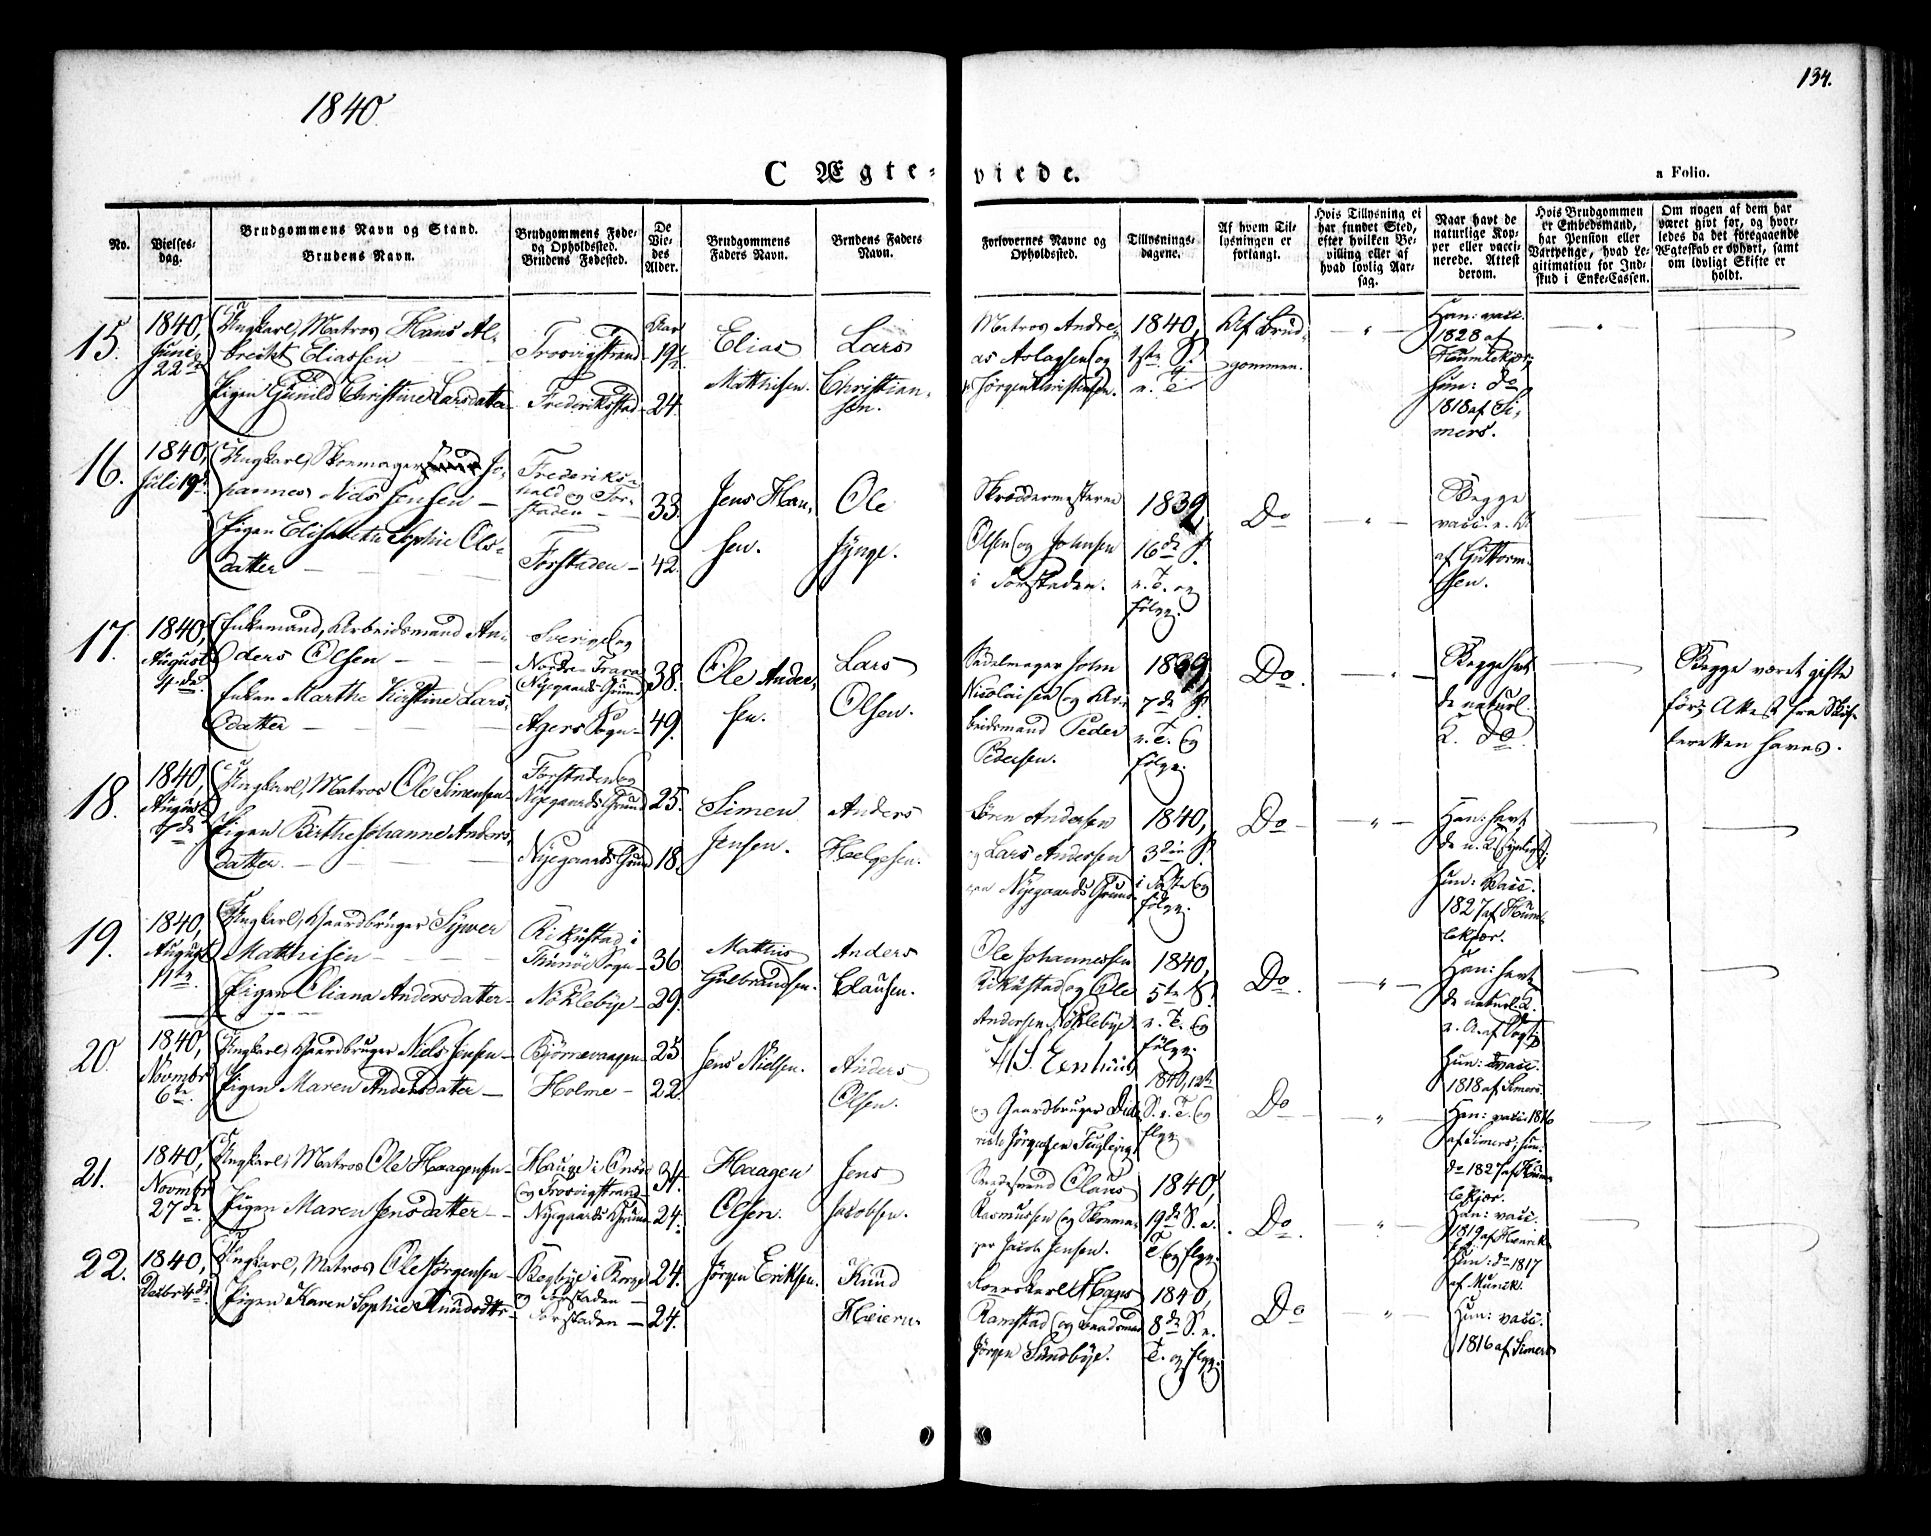 134.
1840.
C Ægte-viede.
a Folio.
No.
Vielses-
dag.
Brudgommens Navn og Stand.
Brudens Navn.
Brudgommens Føde-
og Opholdssted.
Brudens Fødested.
De
Vie-
des
Alder.
Brudgommens
Faders Navn.
Brudens Faders
Navn.
Forlovernes Navne og
Opholdssted.
Tillysnings-
dagene.
Af hvem Til-
lysningen er
forlangt.
Hvis Tillysning ei
har fundet Sted,
efter hvilken Be-
villing eller af
hvad lovlig Aar-
sag.
Naar havt de
naturlige Kop-
per eller vacci-
nerede. Attest
derom.
Hvis Brudgommen
er Embedsmand,
har Pension eller
Vartpenge, hvad Le-
gitimation for Ind-
skud i Enke-Cassen.
Om nogen af dem har
været givt før, og hvor-
ledes da det foregaaende
Ægteskab er ophørt, samt
om lovligt Skifte er
holdt.
15.
1840,
Juni
22de
Ungkarl, Matros Hans Al-
brecht Eliassen
Pigen Gunild Christine Larsdatter
Trosvigstrand
Frederiksstad
Aar
19½
24.
Elias
Matthisen.
Lars
Christian-
sen.
Matros Andre-
as Aslagsen og
Jørgen Christensen.
1840,
1ste S.
e. T.
Af Brud-
gommen.
Han: vacc.
1828 af
Humlekjær,
hun: do
1818 af Si-
mers.
16.
1840,
Juli 19de
Ungkarl, Skomager Jo-
hannes Nils Jensen
Pigen Elisabeth Sophie Ols-
datter
Frederiks-
hald og For-
staden
Forstaden
33.
42.
Jens Han-
sen.
Ole
Jynge.
Skræddermesterne
Olsen og Johnsen
i Forstaden.
1839,
16de S.
e. T. og
følg.
Do
Begge
vacc. e. A.
af Guttorm-
sen.
17.
1840,
August
4de
Enkemand, Arbeidsmand An-
ders Olsen
Enken Marthe Kirstine Lars-
datter
Sverige og
Nordre
Nyegaards Grund
Agers Sogn
38.
49.
Ole Ander-
sen.
Lars
Olsen.
Sadelmager John
Nicolaisen og Ar-
beidsmand Peder
Pedersen.
1839,
7de S.
e. T. og
følg.
Do.
Begge havt
de naturl.
K. do.
Begge været gifte
før; Attest fra Skif-
teretten haves.
18.
1840,
August
7de
Ungkarl, Matros Ole Simensen
Pigen Birthe Johanne Anders-
datter.
Forstaden og
Nyegaards Grund
Nyegaards Grund
25.
18.
Simen
Jensen.
Anders
Helgesen.
Søren Andersen
og Lars Andersen
Nyegaards Grund
1840,
3die S.
i Faste og
følg.
Do
Han: havt
de n. K. synligt;
hun: Vacc.
1827 af Hum-
lekjær.
19.
1840,
August
11te
Ungkarl, Gaardbruger Syver
Matthisen
Pigen Eliana Andersdatter
Rikustad i
Thunøe Sogn
Nøklebye
36
29.
Matthis
Gulbrandsen.
Anders
Clausen.
Ole Johannessen
Rikustad og Ole
Andersen Nøklebye
1840,
5te S.
e. T. og
følg.
Do.
Han: havt
de naturl. K.
e. A. af Vogt;
Hun: vacc.
1818 af Simers
20.
1840,
Novmbr
6te
Ungkarl, Gaardbruger Niels Jensen
Pigen Maren Andersdatter
Bjørnevaagen
Holme
25
22.
Jens Nielsen.
Anders
Olsen.
H. S. Eenhuus
og Gaardbruger Died-
rich Jørgensen Fuglevig.
1840, 12te
S. e. T. og
flg.
Do
Han: vacc. 1816
af Simers, hun:
do 1827 af Hum-
lekjær.
21.
1840,
Novmbr
27de
Ungkarl, Matros Ole Haagensen
Pigen Maren Jensdatter
Hauge i Onsø
og Trosvigstrand
Nyegaards Grund
34.
24.
Haagen
Olsen.
Jens
Jacobsen.
Claus
Rasmussen og Skoma-
ger Jacob Jensen.
1840,
19de S. e.
T. og flg.
Do.
Han: vacc.
1819 af Henrik-
Hun: do 1817
af Munck.
22.
1840,
Decbr 4de
Ungkarl, Matros Ole Jørgensen
Pigen Karen Sophie Knudsdtr
Begbye i Borge
og Forstaden
Forstaden
24.
24.
Jørgen Eriksen.
Knud
Heiern.
Hans
Ramstad og
Jørgen Sundbye.
1840,
8de S. e.
T. og flg.
Do
Hun: vacc.
1816 af Simers